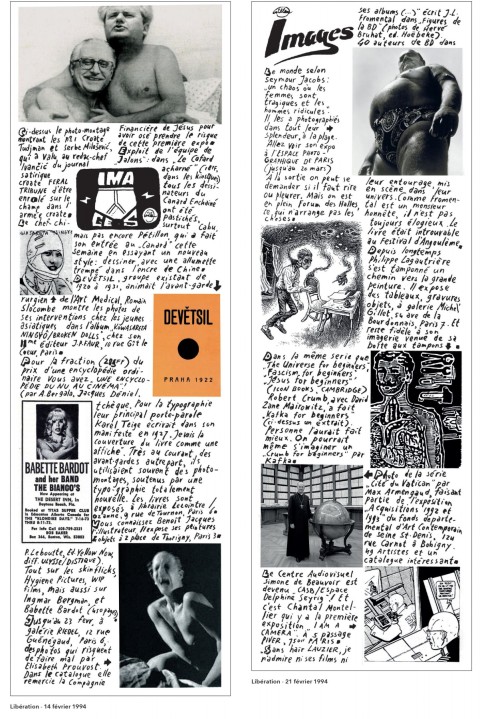 Ci-dessus le photo-montage
montrant les prt croate
Tudjman et serbe Milošević,
qui a valu au redac-chef
du journal
satirique
croate FERAL
TRIBUNE d'être
enrôlé sur le
champ dans l'
armée croate.
Le chef chi-
Financière de Jésus pour
avoir osé prendre le risque
de cette première expo.
Exploit de l'équipe de
Jalons: dans "Le Cafard
acharné" (
dans les kiosques)
tous les dessi-
nateurs du
Canard Enchaîné
ont été
pastichés,
surtout Cabu,
IMA
mais pas encore Pétillon, qui a fait
son entrée au Canard cette
semaine en essayant un nouveau
style: dessiner avec une allumette
trempée dans l'encre de Chine.
DEVĚTSIL, groupe existant de
1920 à 1931, animait l'avant-garde
rurgien de l'Art Medical, Romain
Slocombe montre les photos de
ses interventions chez les jeunes
asiatiques dans l'album
BROKEN DOLLS, chez son
éditeur J.P. FAUR, 10 rue Gît le
Coeur, Paris.
Pour la fraction (288ff) du
prix d'une encyclopédie ordi-
naire VOUS AVEZ UNE ENCYCLO-
PÉDIE DU NU AU CINEMA!
(par A Bergala, Jacques Déniel,
DEVĚTSIL
PRAHA 1922
BABETTE BARDOT
and her BAND
THE BIANCO'S
Now Appearing at
THE DESERT INN, in
Daytona Beach, Fla.
tchèque. Pour la typographie
leur principal porte-parole
Karel Teige écrivait dans son
manifeste en 1927. Jamais la
couverture du livre comme une
affiche. Très au courant, des
avant-gardes autre part, ils
utilisaient souvent des photo-
montages, soutenus par une
typo-graphie totalement
nouvelle. Les livres sont
exposés à librairie Lecointre/
Ozanne, 9 rue de Tournon, Paris 6.
Vous connaissez Benoît Jacques
illustrateur? Il expose ses peintures
objets à 2 place de Thorigny, Paris 3.
P. Leboutte, Ed Yellow Now,
diff. ULYSSE/DISTIQUE).
Tout sur les skinflicks,
Hygiene Pictures, WIP
films, mais aussi sur
Ingmar Bergman et
Babette Bardot
Jusqu'au 23 Fevr, à
galerie RIEDEL, 12 rue
Guénégaud, Paris 6,
des photos qui risquent
de faire mal par
Elisabeth Prouvost.
Dans le catalogue elle
remercie la Compagnie
Libération - 14 février 1994
Images
Le monde selon
Seymour Jacobs:
un chaos où les
femmes sont
tragiques et les
hommes ridicules.
Il les a photographiés
dans tout leur
splendeur, à la plage.
Allez voir son expo
à l'ESPACE PHOTO-
GRAPHIQUE DE PARIS
(jusqu'au 20 mars)
A la sortie on peut se
demander si il faut rire
ou pleurer. Mais on est
en plein Forum des Halles,
ce qui n'arrange pas les
choses.
ses albums (...)" écrit J.L.
Fromental dans "Figures de
la BD" (photos de Hervé
Bruhat, ed. Hoëbeke).
40 auteurs de BD dans
leur entourage, mis
en scène dans leur
univers. Comme Fromen-
tal est un monsieur
honnête, il n'est pas
toujours élogieux. Le
livre était introuvable
au Festival d'Angoulême.
Depuis longtemps
Philippe Lagautrière
s'est tamponné un
chemin vers la grande
peinture. Il expose
des tableaux, gravures,
objets, à galerie Michel
Gillet, 54 ave de la
Bourdonnais, Paris 7. Et
reste fidèle à son
imagerie venue de sa
boîte aux tampons.
Dans la même serie que
"The Universe for beginners",
"Fascism for beginners",
"Jesus for beginners"
(ICON BOOKS, CAMBRIDGE)
Robert Crumb, avec David
Zane Mairowitz, a fait
Kafka for beginners
(ci-dessus un extrait).
Personne l'aurait fait
mieux. On pourrait
même s'imaginer un
"Crumb for beginners" par
Kafka.
Photo de la série
"Cité du Vatican" par
Max Armengaud, faisant
partie de l'exposition
"Acquisitions 1992 et
1993" du fonds departe-
mental d'Art Contemporain
de Seine St-Denis, 
rue Carnot à Bobigny.
artistes et un
catalogue intéressant.
Le Centre Audiovisuel
Simone de Beauvoir est
devenu CASB/Espace
Delphine Seyrig! Et
c'est Chantal Montel-
lier qui y a la première
exposition. I AM A
CAMERA. à 5 passage
PIVER, 75011 PARIS.
Sans haïr LAUZIER, je
n'admire ni ses films ni
Libération - 21 février 1994